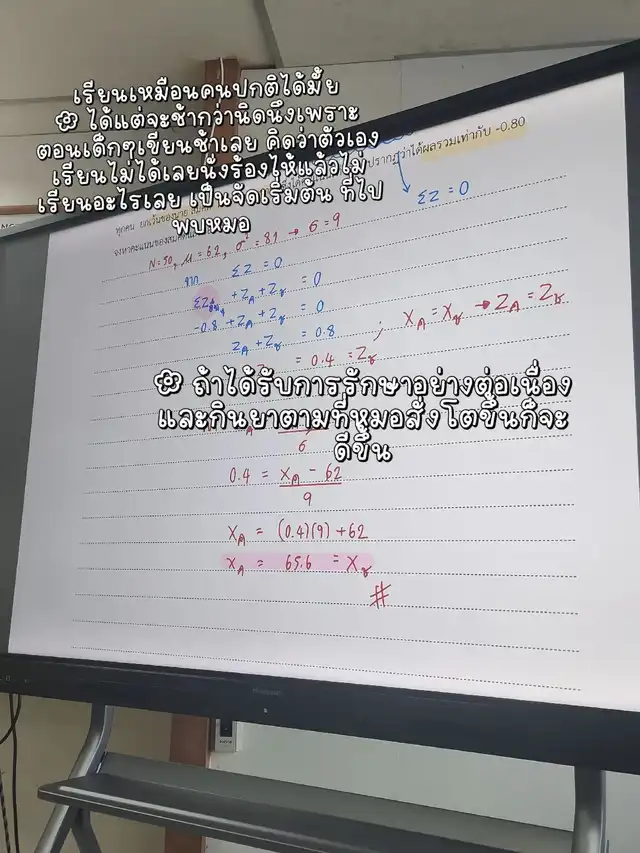 เรียนเหมือนคนปกติได้มั้ย
ได้แต่จะช้ากว่านิดนึงเพราะ
ตอนเด็กๆเขียนช้าเลย คิดว่าตัวเอง
เรียนไม่ได้เลยนั่งร้องไห้แล้วไม่
เรียนอะไรเลย เป็นจัดเริ่มต้น ที่ไป
พบหมอ
ปรากฏว่าได้ผลรวมเท่ากับ -0.80
ทุกคน ยกเว้นของนาย
จงหาคะแนนของสมศักดิ์
ΣZ = 0
N = 50, μ = 62, σ² = 81 → σ = 9
จาก ΣZ = 0
+ Z_A + Z_ช = 0
-0.8 + Z_A + Z_ช = 0
Z_A + Z_ช = 0.8
; X_A = X_ช → Z_A = Z_ช
= 0.4 = Z_ช
ถ้าได้รับการรักษาอย่างต่อเนื่อง
และกินยาตามที่หมอสั่งโตขึ้นก็จะ
ดีขึ้น
σ
0.4 = X_A - 62
9
X_A = (0.4)(9) + 62
X_A = 65.6 = X_ช
#